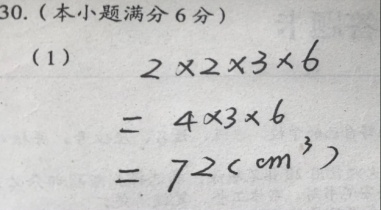 30.(本小题满分6分)
(1) 2×2×3×6
= 4×3×6
= 72(cm³)